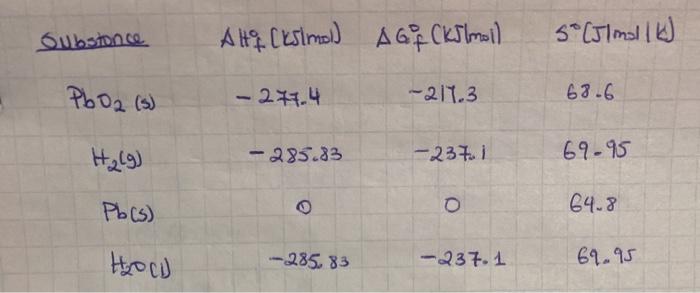 Substance ΔH°f (KJ/mol) ΔG°f (KJ/mol) S° (J/mol/K)
PbO2 (s) -277.4 -217.3 68.6
H2(g) -285.83 -237.1 69.95
Pb(s) 0 0 64.8
H2O(l) -285.83 -237.1 69.95